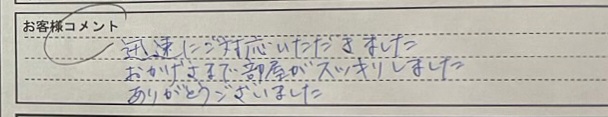 お客様コメント
迅速にご対応いただきました
おかげさまで部屋がスッキリしました
ありがとうございました